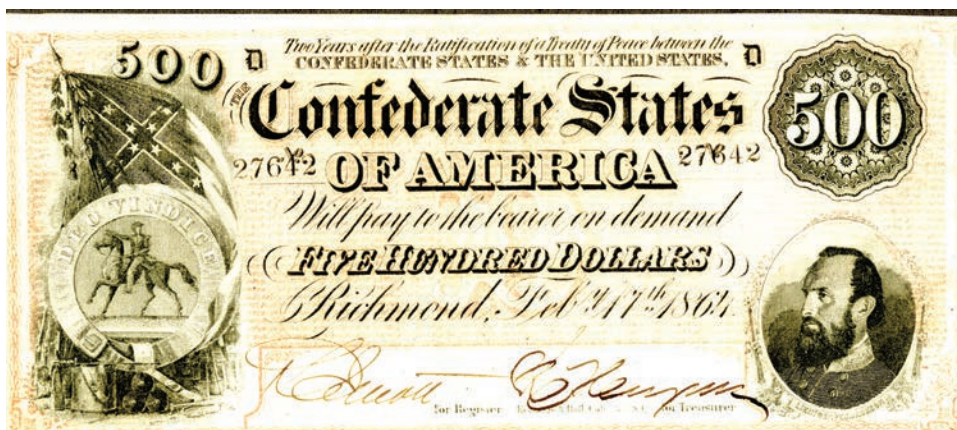 500 D Two Years after the Ratification of a Treaty of Peace between the D
CONFEDERATE STATES & THE UNITED STATES,
THE
Confederate States 500
27642 OF AMERICA 27642
Will pay to the bearer on demand
FIVE HUNDRED DOLLARS
Richmond, Feby. 17th 1864.
DEO VINDICE
for Register for Treasurer